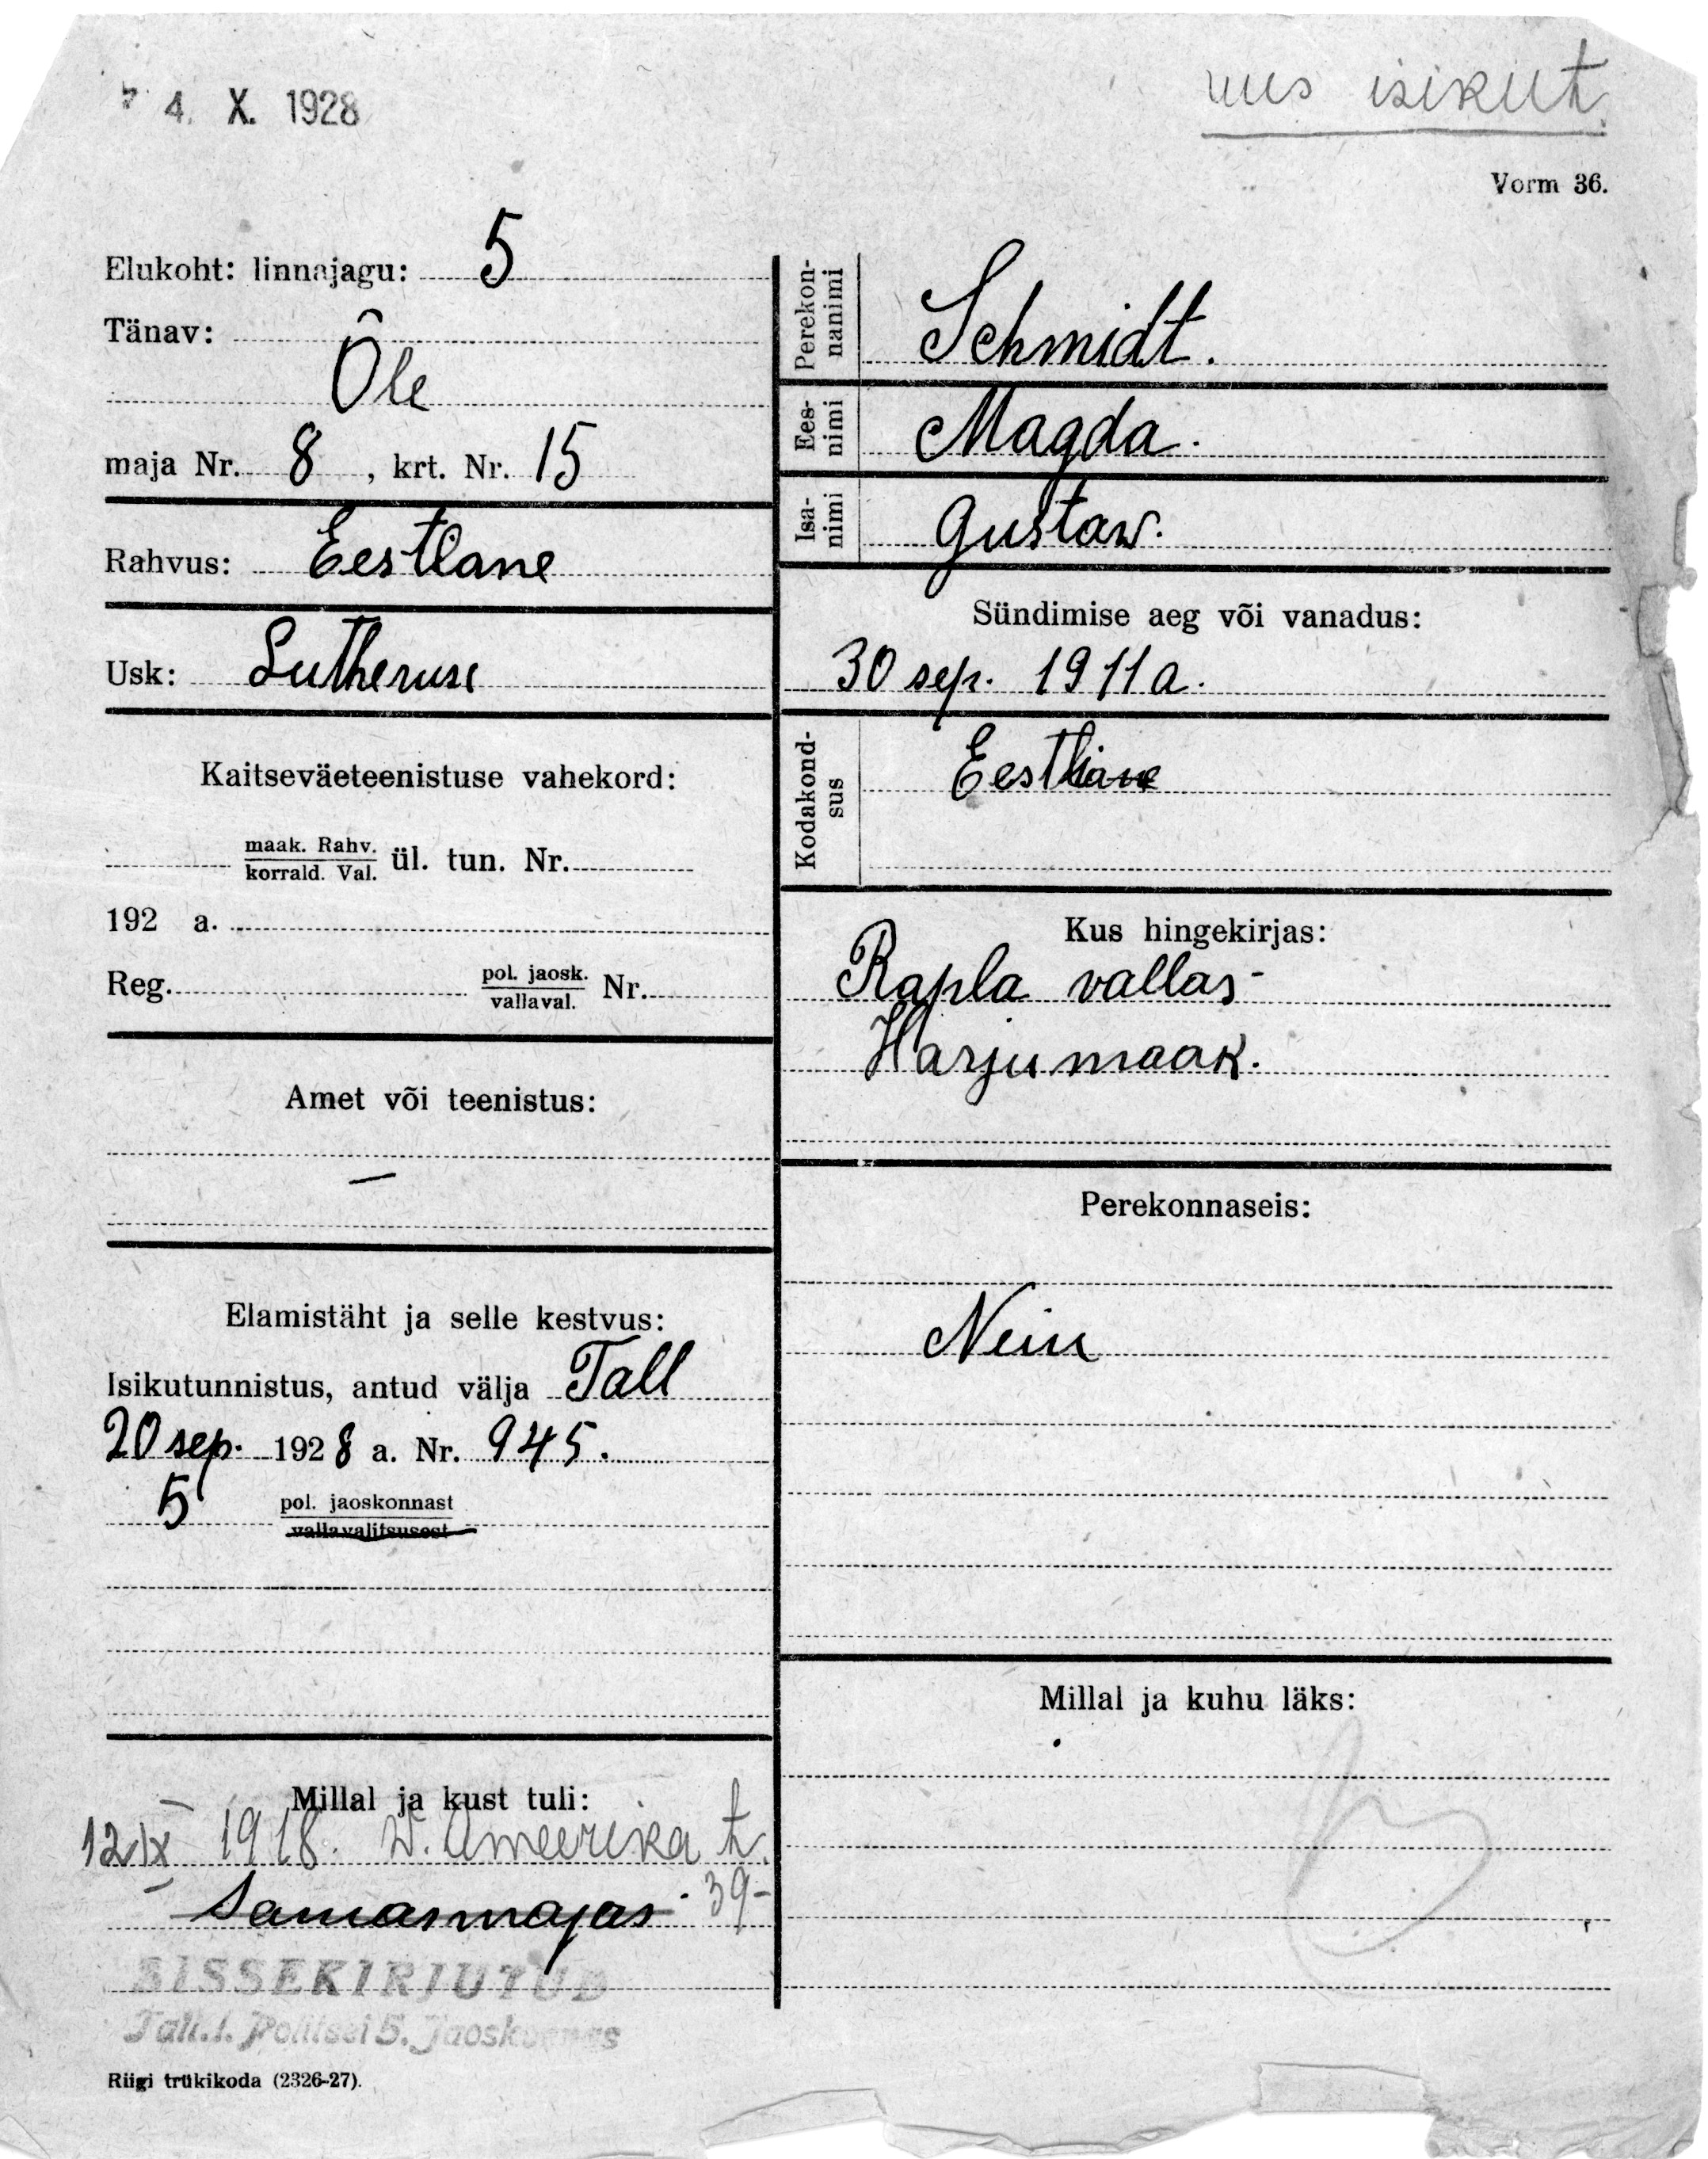 4. X. 1928
uus isikut.
Vorm 36.
Elukoht: linnajagu: 5
Tänav:
Õle
maja Nr. 8, krt. Nr. 15
Rahvus: Eestlane
Usk: Lutheruse
Kaitseväeteenistuse vahekord:
maak. Rahv.
korrald. Val. ül. tun. Nr.
192 a.
Reg. pol. jaosk.
vallaval. Nr.
Amet või teenistus:
—
Elamistäht ja selle kestvus:
Isikutunnistus, antud välja Tall
20 sep. 1928 a. Nr. 945.
5 pol. jaoskonnast
vallavalitsusest
Millal ja kust tuli:
12 IX 1918. W. Ameerika t.
39-
Samasmajas
SISSEKIRJUTUD
Tall.l. Politsei 5. Jaoskonnas
Riigi trükikoda (2326-27).
Perekon-
nanimi
Schmidt.
Ees-
nimi
Magda.
Isa-
nimi
Gustaw.
Sündimise aeg või vanadus:
30 sep. 1911 a.
Kodakond-
sus
Kus hingekirjas:
Rapla vallas-
Harjumaak.
Perekonnaseis:
Neiu
Millal ja kuhu läks: